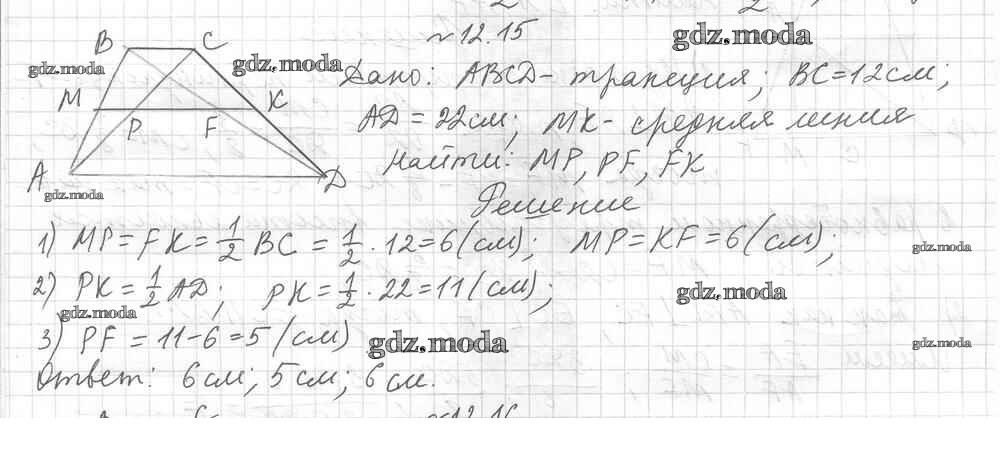 №12.15
gdz.moda
B C
gdz.moda
gdz.moda
Дано: ABCD - трапеция; BC=12см;
M K
P F
AD = 22см; MK - средняя линия
A D
Найти: MP, PF, FK
gdz.moda
Решение
1) MP = FK = 1/2 BC = 1/2 · 12 = 6 (см); MP = KF = 6 (см);
gdz.moda
2) PK = 1/2 AD; PK = 1/2 · 22 = 11 (см);
gdz.moda
gdz.moda
3) PF = 11 - 6 = 5 (см)
gdz.moda
gdz.moda
Ответ: 6 см; 5 см; 6 см.
№12.16